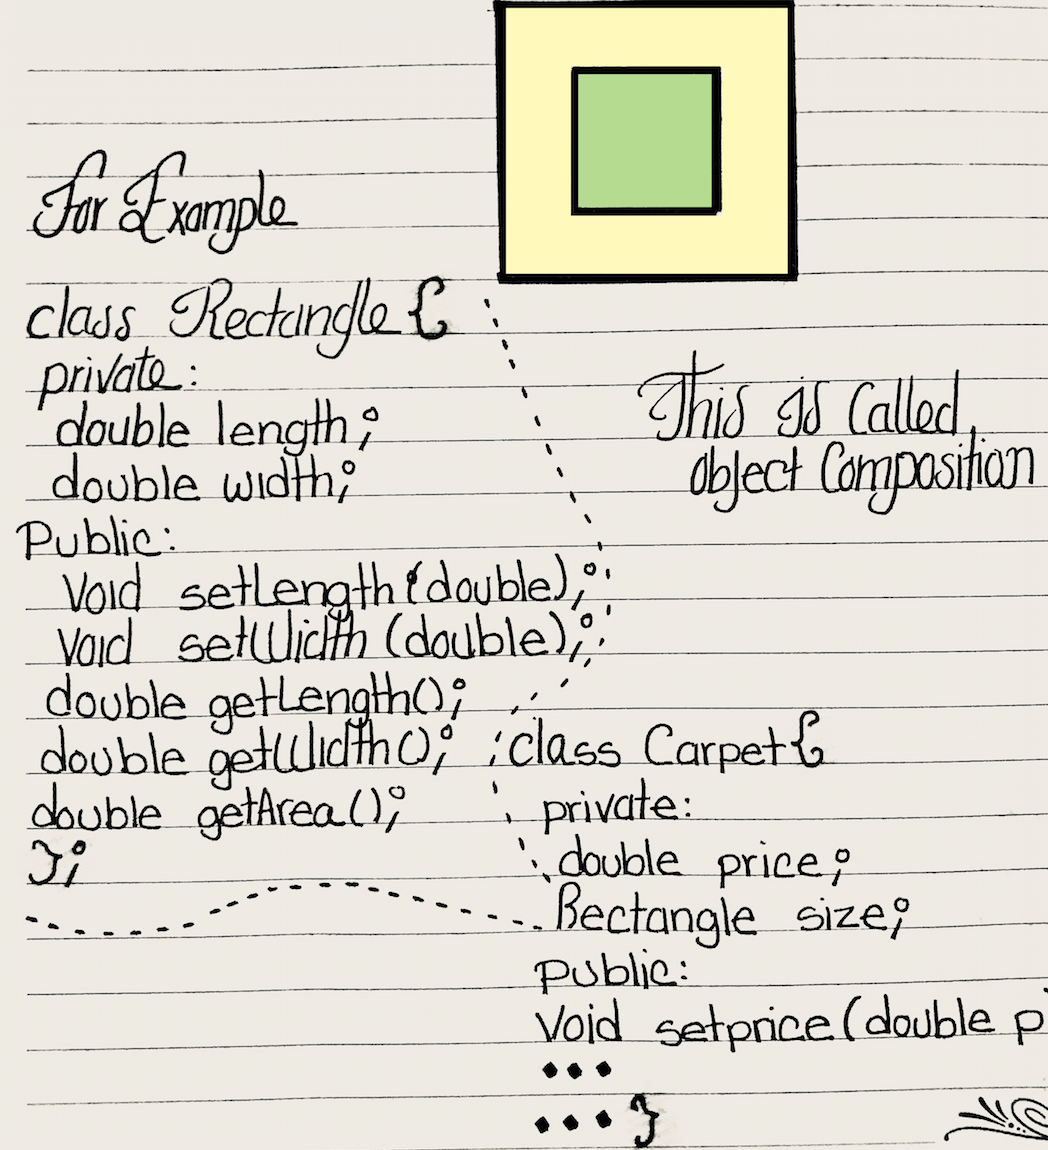 For Example
class Rectangle {
private:
double length;
double width;
Public:
Void setLength(double);
Void setWidth (double);
double getLength();
double getWidth();
double getArea();
};
This is Called
object Composition
class Carpet {
private:
double price;
Rectangle size;
public:
Void setprice(double p
...
... }